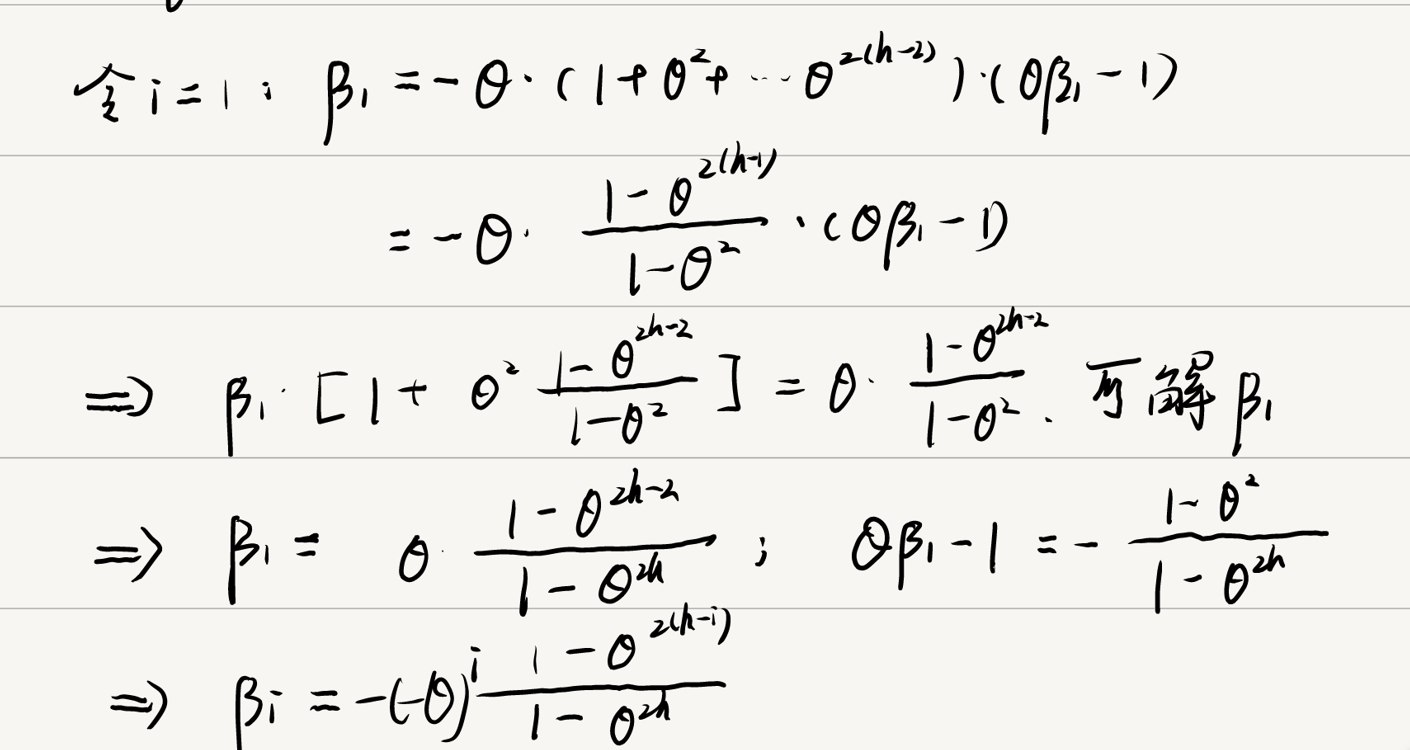 令 i = 1 : β₁ = -θ · (1 + θ² + ⋯ θ^{2(h-2)}) · (θβ₁ - 1)
= -θ · \frac{1 - θ^{2(h-1)}}{1 - θ²} · (θβ₁ - 1)
⇒ β₁ · [1 + θ² \frac{1 - θ^{2h-2}}{1 - θ²}] = θ · \frac{1 - θ^{2h-2}}{1 - θ²} . 可解 β₁
⇒ β₁ = θ · \frac{1 - θ^{2h-2}}{1 - θ^{2h}} ; θβ₁ - 1 = - \frac{1 - θ²}{1 - θ^{2h}}
⇒ βᵢ = -(-θ)^i \frac{1 - θ^{2(h-i)}}{1 - θ^{2h}}